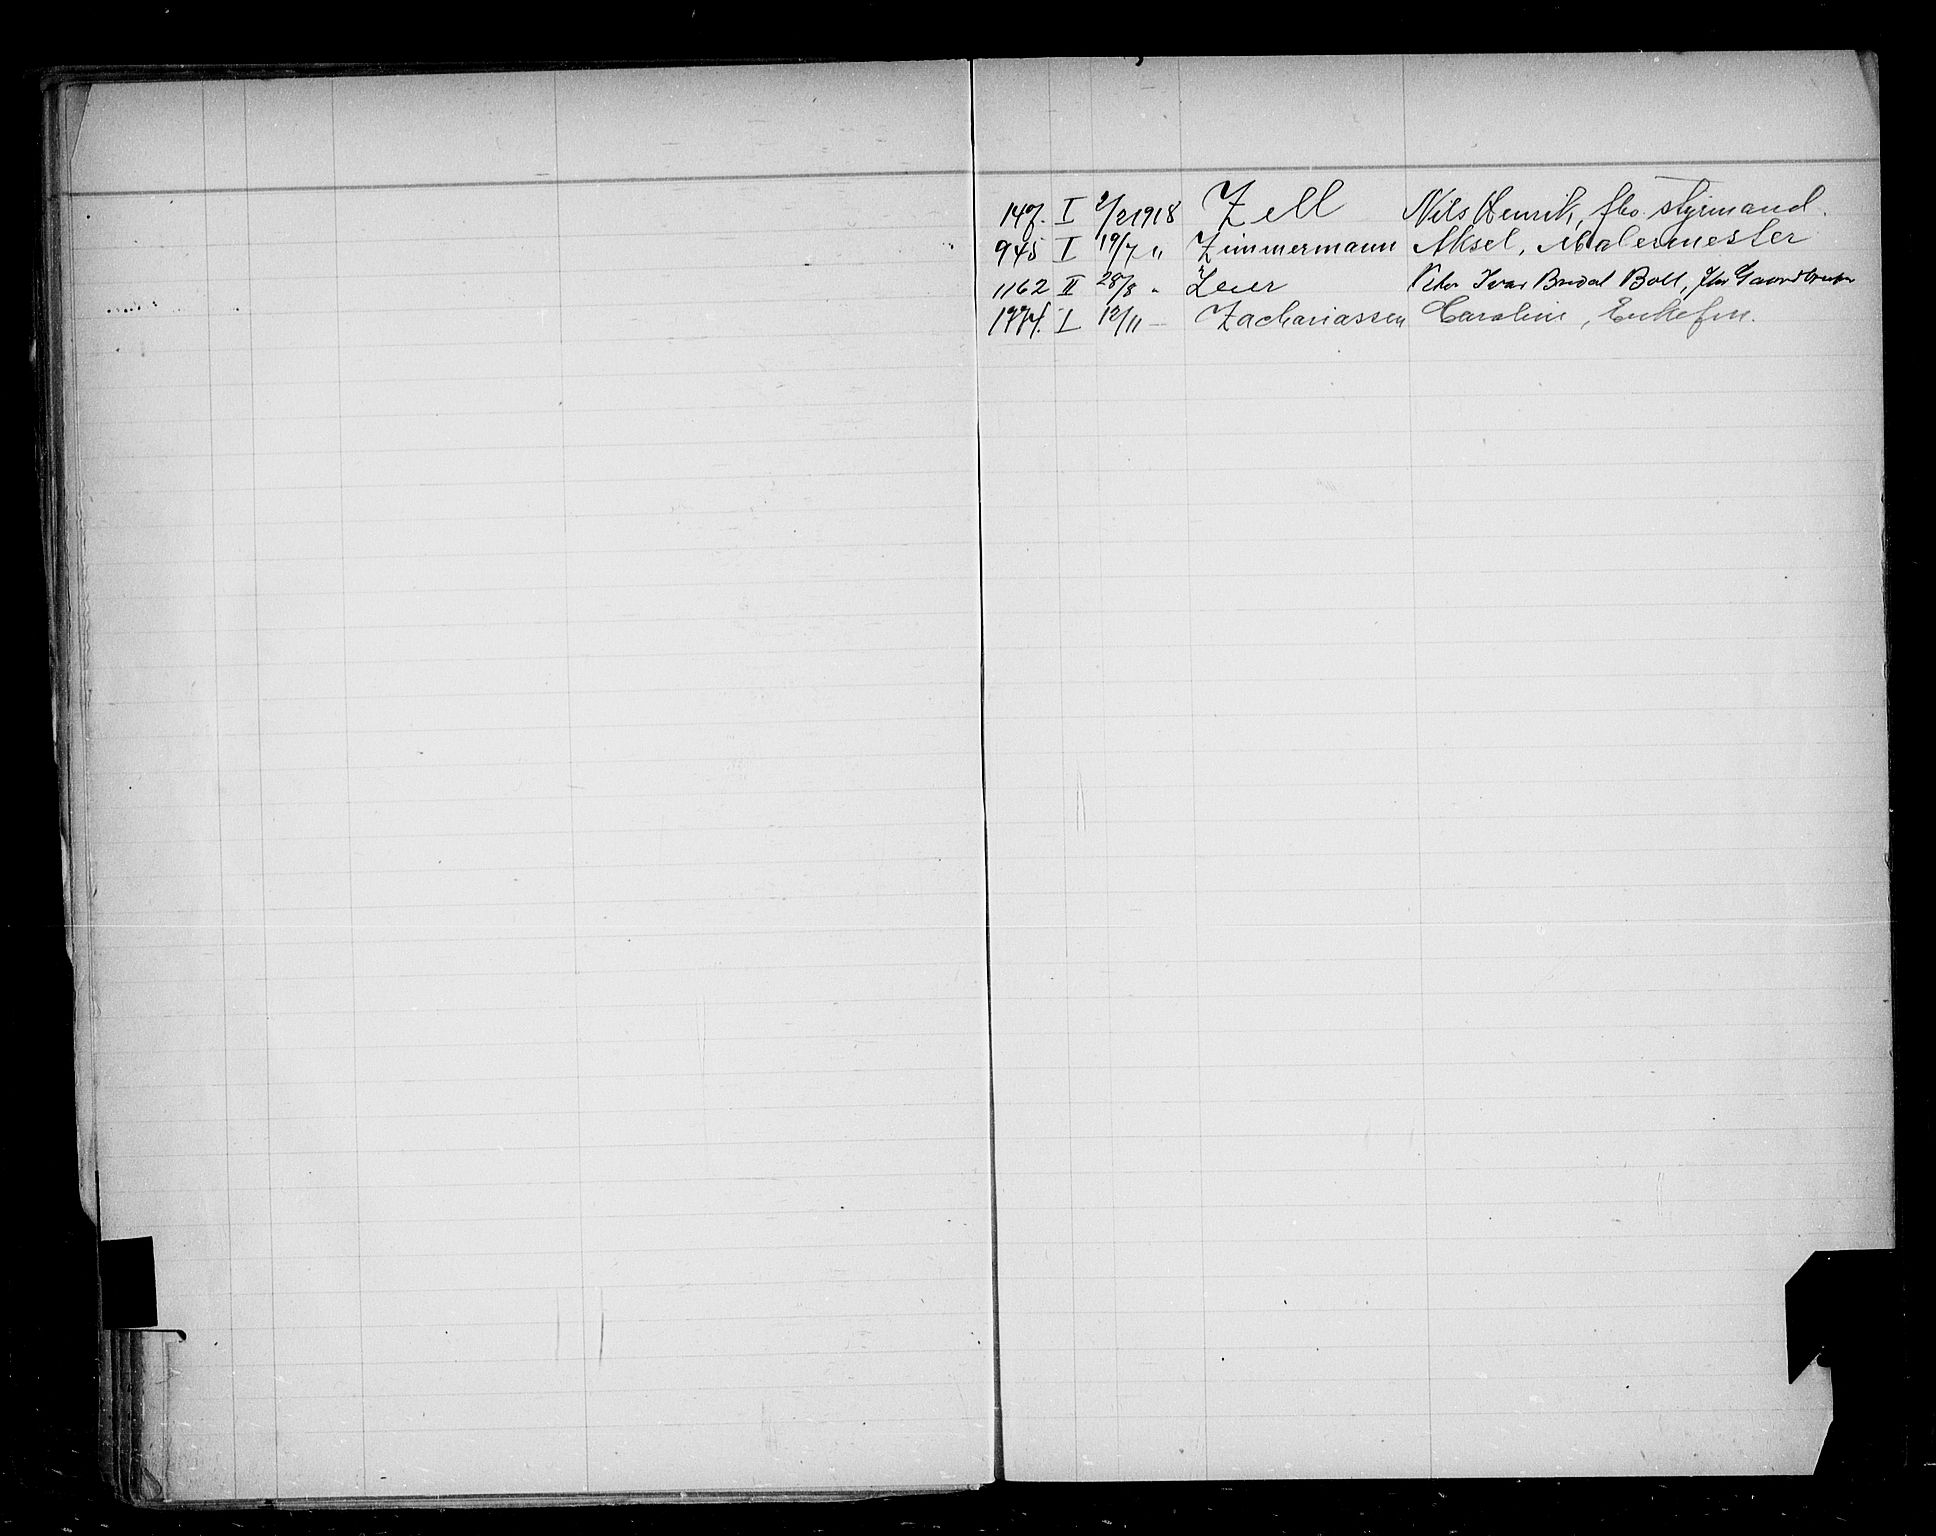 147. I 2/2 1918 Zell Nils Henrik, fhv. styrmand.
945 I 19/7 " Zimmermann Aksel, Malermester
1162 II 28/8 " Zeier Peter Ivar Bredal Boll, fhv Gaardbruger
1774. I 12/11 — Zachariassen Caroline, Enkefru.